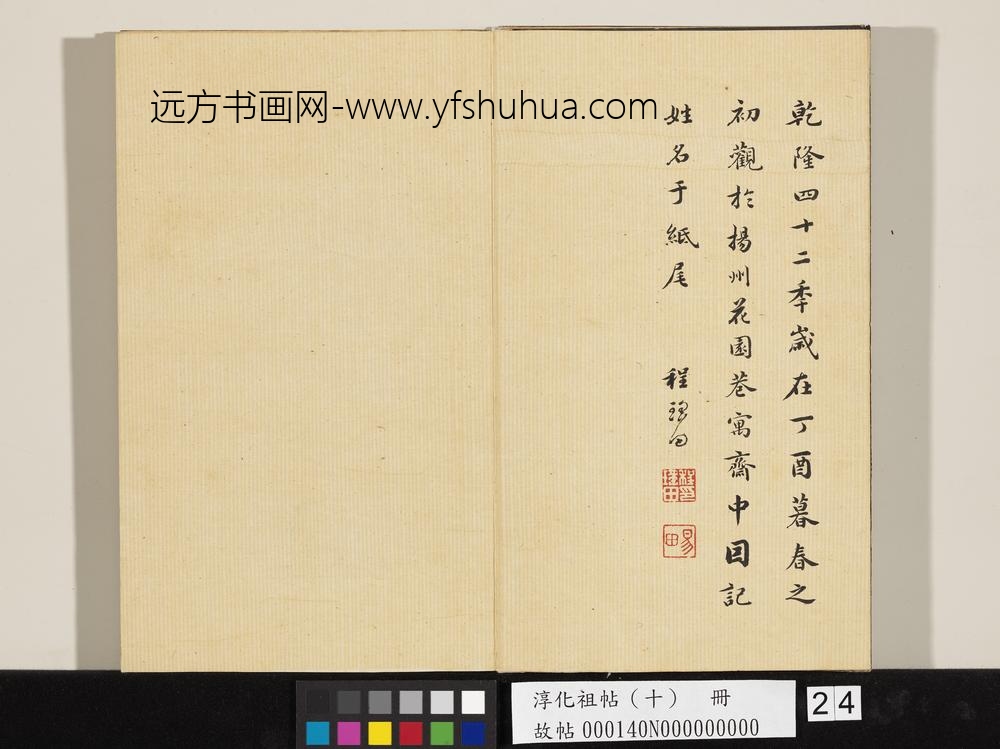 远方书画网-www.yfshuhua.com
乾隆四十二季歲在丁酉暮春之
初觀於揚州花園巷寓齋中因記
姓名于紙尾
程瑤田
淳化祖帖（十） 冊
故帖 000140N000000000
24